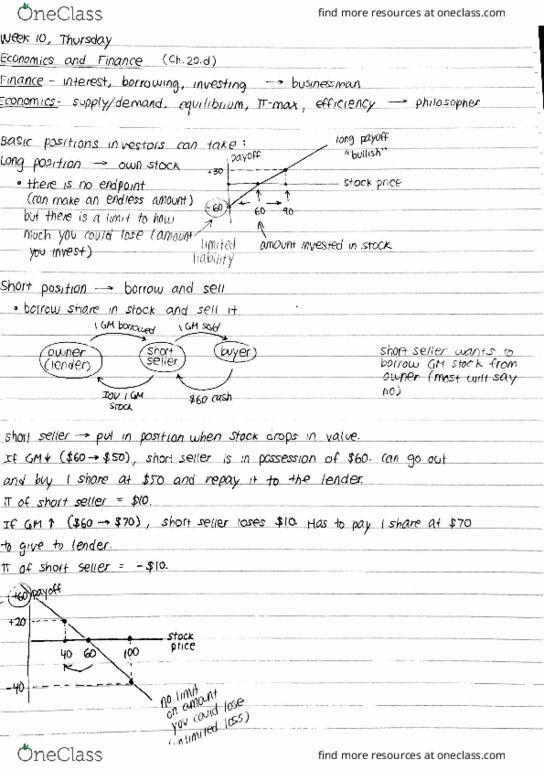 OneClass
find more resources at oneclass.com
Week 10, Thursday
Economics and Finance (Ch. 20.d)
Finance - interest, borrowing, investing → businessman
Economics - supply/demand, equilibrium, π-max, efficiency → philosopher
Basic positions investors can take:
long payoff
"bullish"
payoff
Long position → own stock
+30
stock price
• there is no endpoint
(can make an endless amount)
-60
60
90
but there is a limit to how
much you could lose (amount
you invest)
limited
liability
amount invested in stock
Short position → borrow and sell
• borrow share in stock and sell it
1 GM borrowed
1 GM sold
owner
(lender)
short
seller
buyer
IOU 1 GM
stock
$60 cash
short seller wants to
borrow GM stock from
owner (most will say
no)
short seller → put in position when stock drops in value.
If GM↓ ($60 → $50), short seller is in possession of $60. Can go out
and buy 1 share at $50 and repay it to the lender.
π of short seller = $10.
If GM ↑ ($60 → $70), short seller loses $10. Has to pay 1 share at $70
to give to lender.
π of short seller = -$10.
+60
payoff
+20
stock
price
40
60
100
-40
no limit
on amount
you could lose
(unlimited loss)
OneClass
find more resources at oneclass.com